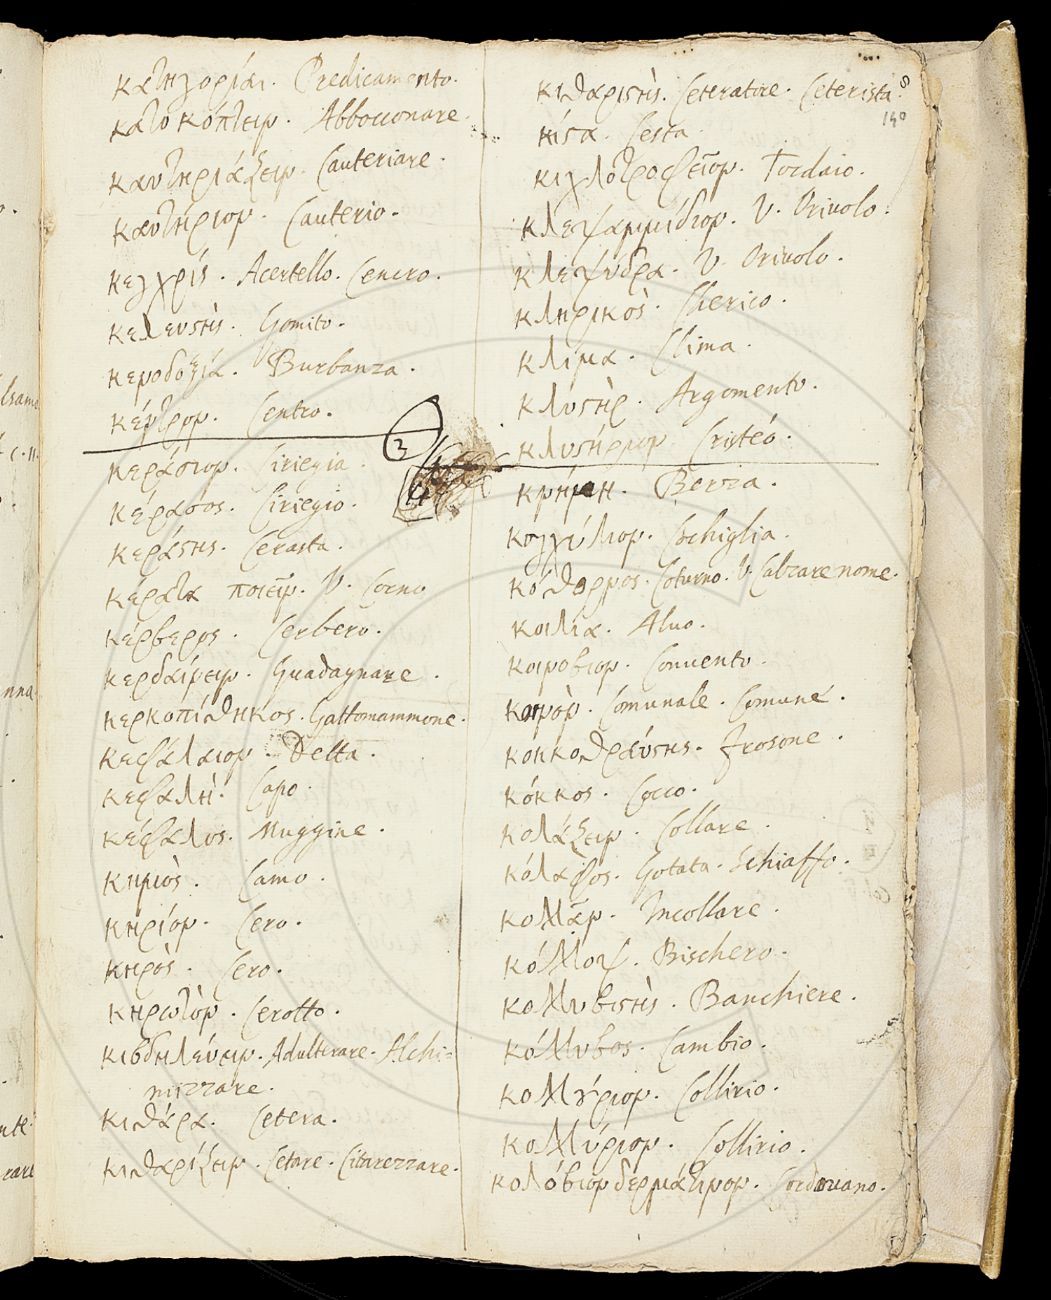 κατηγορίαι. Predicamento.
κατοκόπτειν. Abbocconare.
καυτηριάζειν. Cauteriare.
καυτήριον. Cauterio.
κεγχρίς. Acertello. Cencro.
κελευστὴς. Gomito.
κενοδοξία. Burbanza.
κέντρον. Centro.
3
κεράσιον. Ciriegia.
κέρασος. Ciriegio.
κεράστης. Cerasta.
κέρατα ποιεῖν. V. Corno
κέρβερος. Cerbero.
κερδαίνειν. Guadagnare.
κερκοπίθηκος. Gattomammone.
κεφάλαιον. Delta.
κεφαλή. Capo.
κέφαλος. Muggine.
κημὸς. Camo.
κηρίον. Cero.
κηρὸς. Cero.
κηρωτὸν. Cerotto.
κιβδηλεύειν. Adulterare. Alchi=
mizzare.
κιθάρα. Cetera.
κιθαρίζειν. Cetare. Citarezzare.
8
140
κιθαριστὴς. Ceteratore. Ceterista.
κίστα. Cesta.
κιχλοτροφεῖον. Tordaio.
κλεψαμμίδιον. V. Orivolo.
κλεψύδρα. V. Orivolo.
κληρικὸς. Cherico.
κλίμα. Clima.
κλυστὴρ. Argomento.
κλυστήριον. Cristéo.
κνήμη. Berza.
κογχύλιον. Cochiglia.
κόθορνος. Coturno. V. Calzare nome.
κοιλία. Alvo.
κοινόβιον. Convento.
κοινὸν. Comunale. Comune.
κοκκοθραύστης. Frosone.
κόκκος. Cocco.
κολάζειν. Collare.
κόλαφος. Gotata. Schiaffo.
κολλᾶν. Incollare.
κόλλοψ. Bischero.
κολλυβιστὴς. Banchiere.
κόλλυβος. Cambio.
κολλύριον. Collirio.
κολλύριον. Collirio.
κολόβιον δερμάτινον. Cordovano.